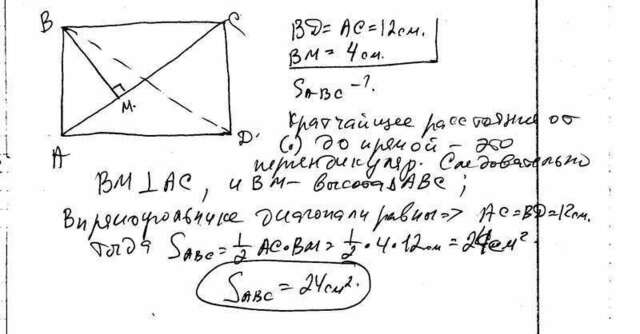 B
C
BD = AC = 12 см.
BM = 4 см.
S ABC - ?
M.
A
D.
Кратчайшее расстояние от
(·) до прямой - это
перпендикуляр. Следовательно
BM ⊥ AC, и BM - высота Δ ABC;
В прямоугольнике диагонали равны => AC = BD = 12 см.
Тогда S ABC = 1/2 AC · BM = 1/2 · 4 · 12 см = 24 см².
S ABC = 24 см².